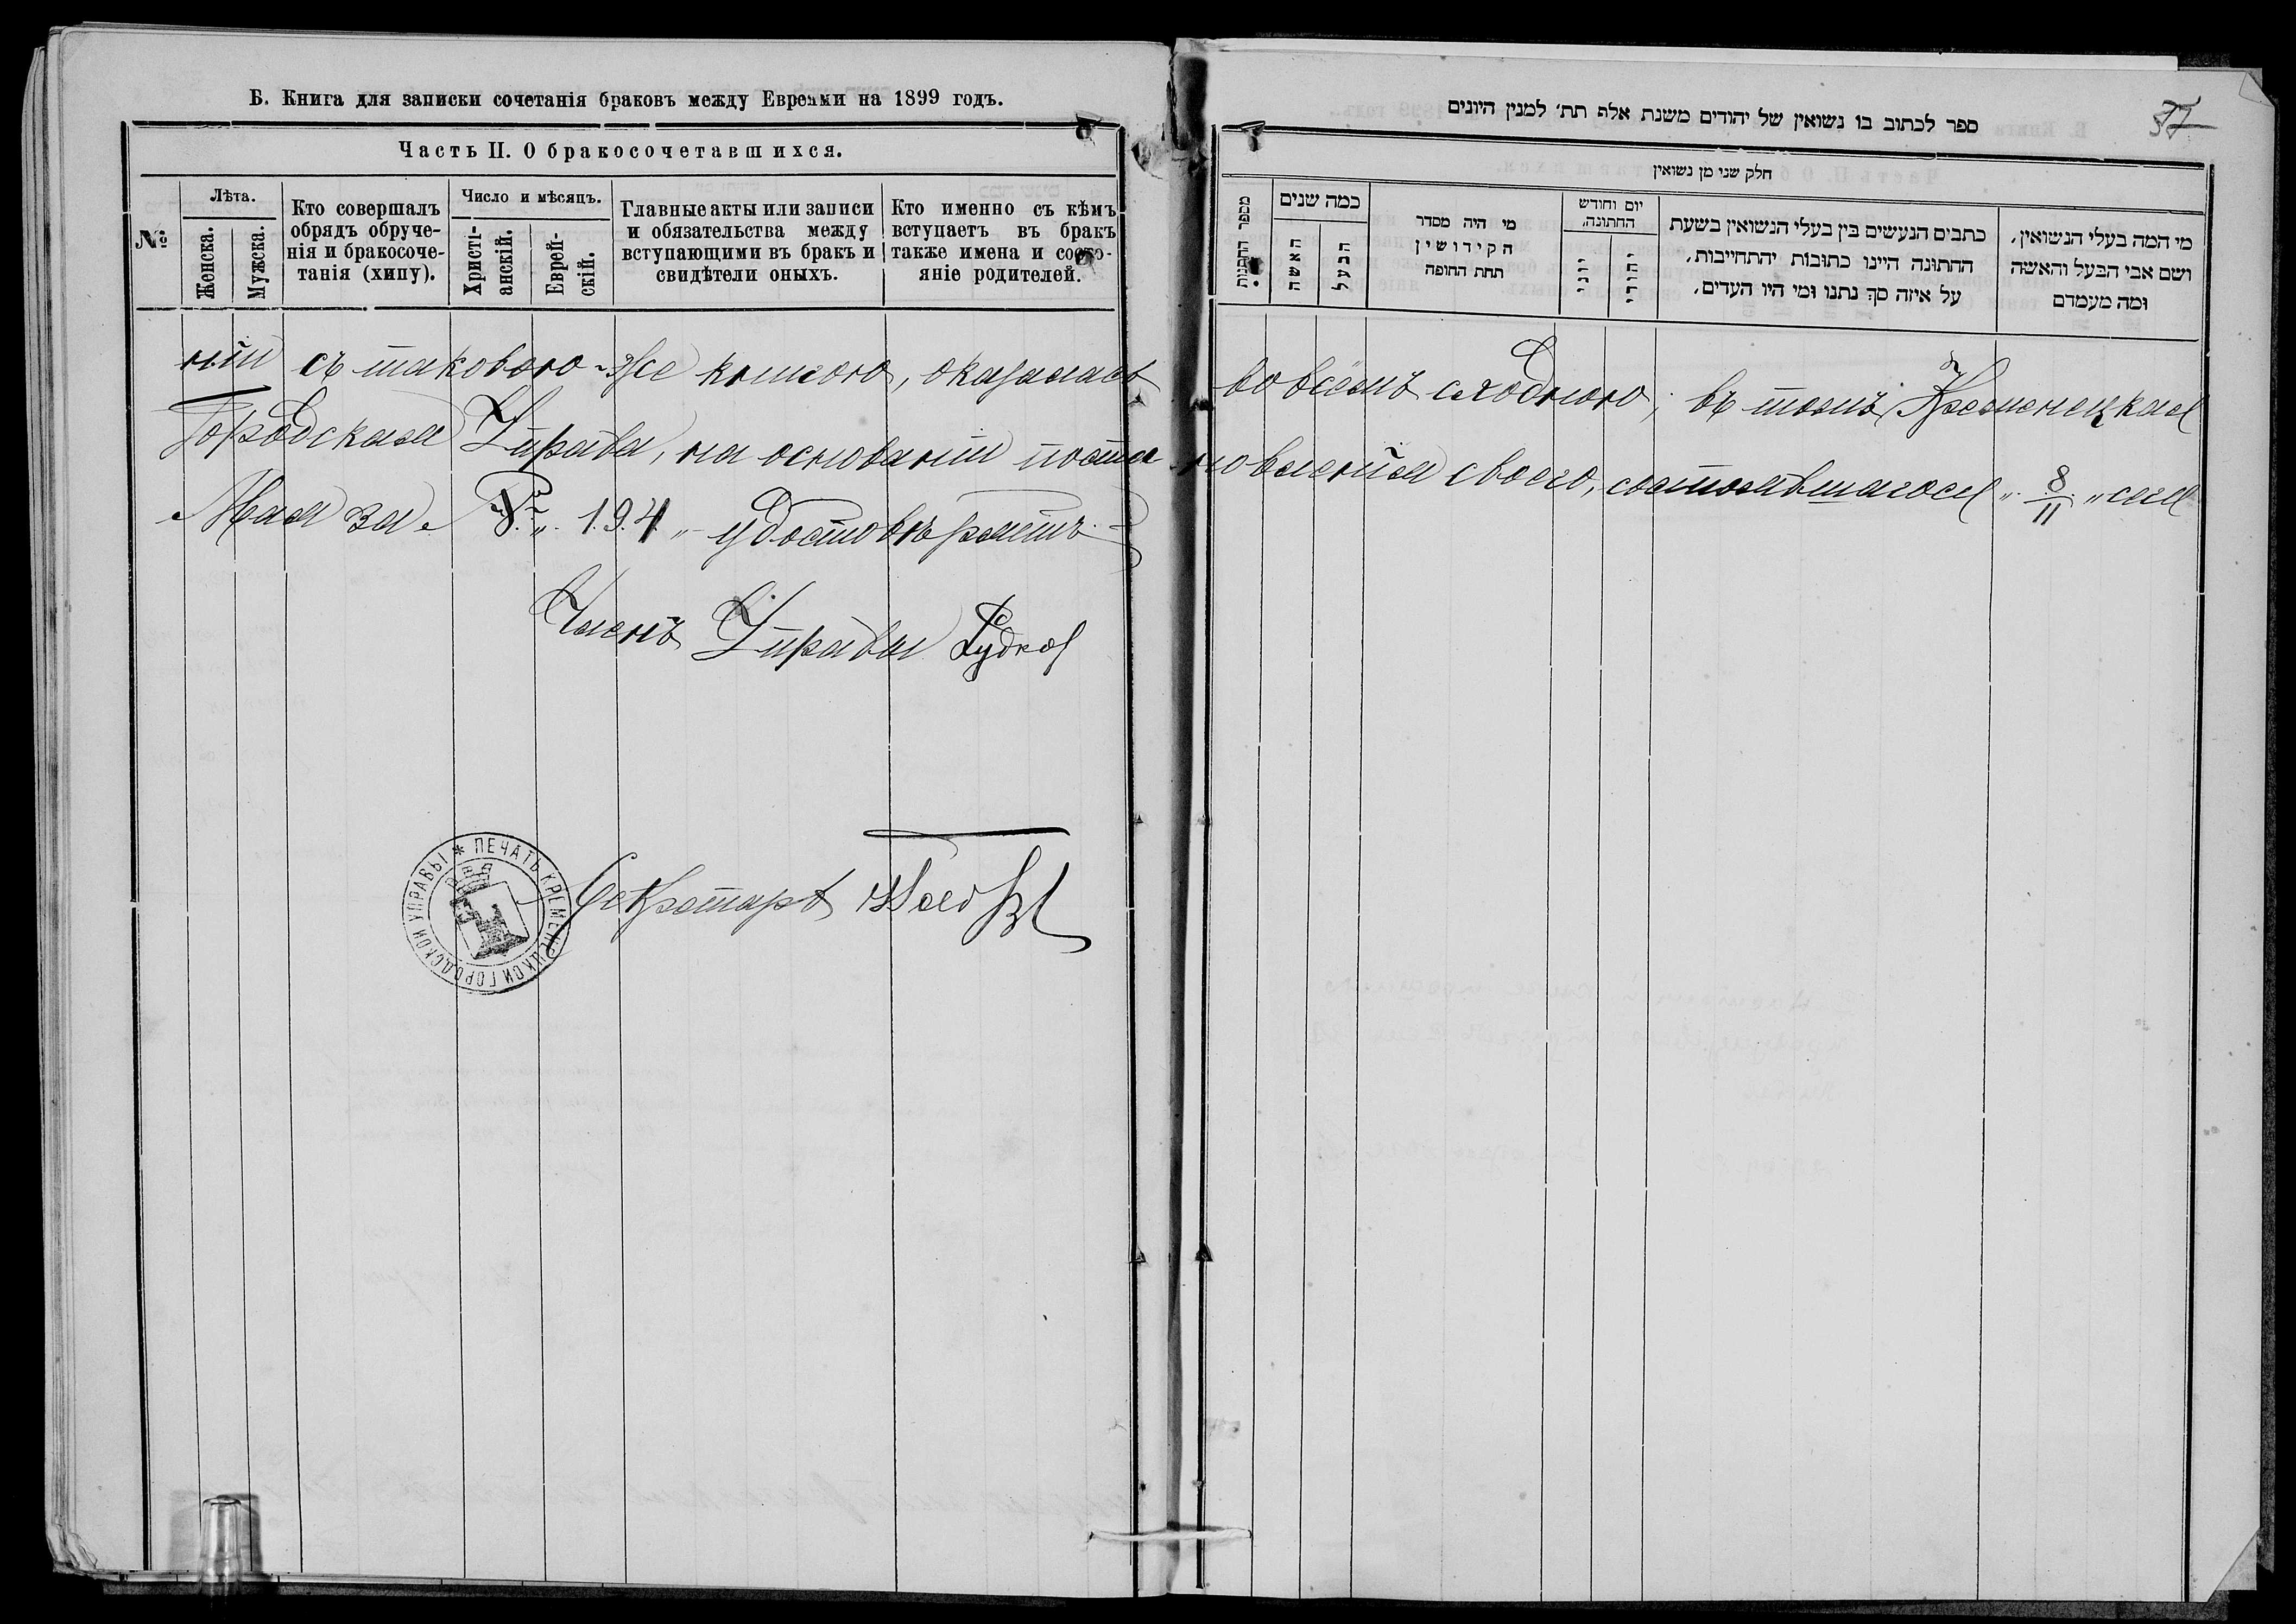 Б. Книга для записки сочетанія браковъ между Евреями на 1899 годъ.
Часть II. О бракосочетавшихся.
№
Лѣта.
Женска.
Мужска.
Кто совершалъ
обрядъ обруче-
нія и бракосоче-
танія (хипу).
Число и мѣсяцъ.
Христі-
анскій.
Еврей-
скій.
Главные акты или записи
и обязательства между
вступающими въ бракъ и
свидѣтели оныхъ.
Кто именно съ кѣмъ
вступаетъ въ бракъ
также имена и состо-
яніе родителей.
ספר לכתוב בו נשואין של יהודים משנת אלף תת׳ למנין היונים
37
חלק שני מן נשואין
מספר החתונות
כמה שנים
האשה
הבעל
מי היה מסדר
הקידושין
תחת החופה
יום וחודש
החתונה.
יוני
יהודי
כתבים הנעשים בין בעלי הנשואין בשעת
החתונה היינו כתובות יהתחייבות,
על איזה סך נתנו ומי היו העדים,
מי המה בעלי הנשואין,
ושם אבי הבעל והאשה
ומה מעמדם
ніи съ таковою-же книгою, оказалась во всемъ сходною, въ томъ Кременецкая
Городская Управа, на основаніи постановленія своего, состоявшагося „8/11„ сего
Мая за № 194„ удостовѣряетъ.
Членъ Управы
Секретарь
* ПЕЧАТЬ КРЕМЕНЕЦКОЙ ГОРОДСКОЙ УПРАВЫ